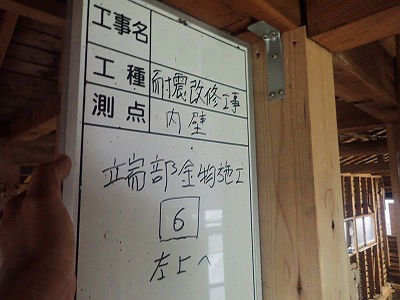 工事名
工種 耐震改修工事
測点 内壁
端部金物施工
6
左上へ